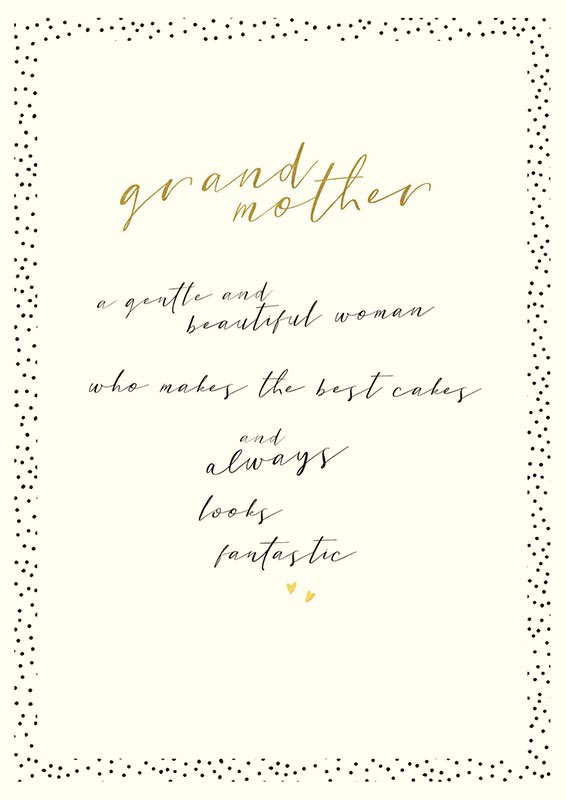 grand
mother
a gentle and
beautiful woman
who makes the best cakes
and
always
looks
fantastic